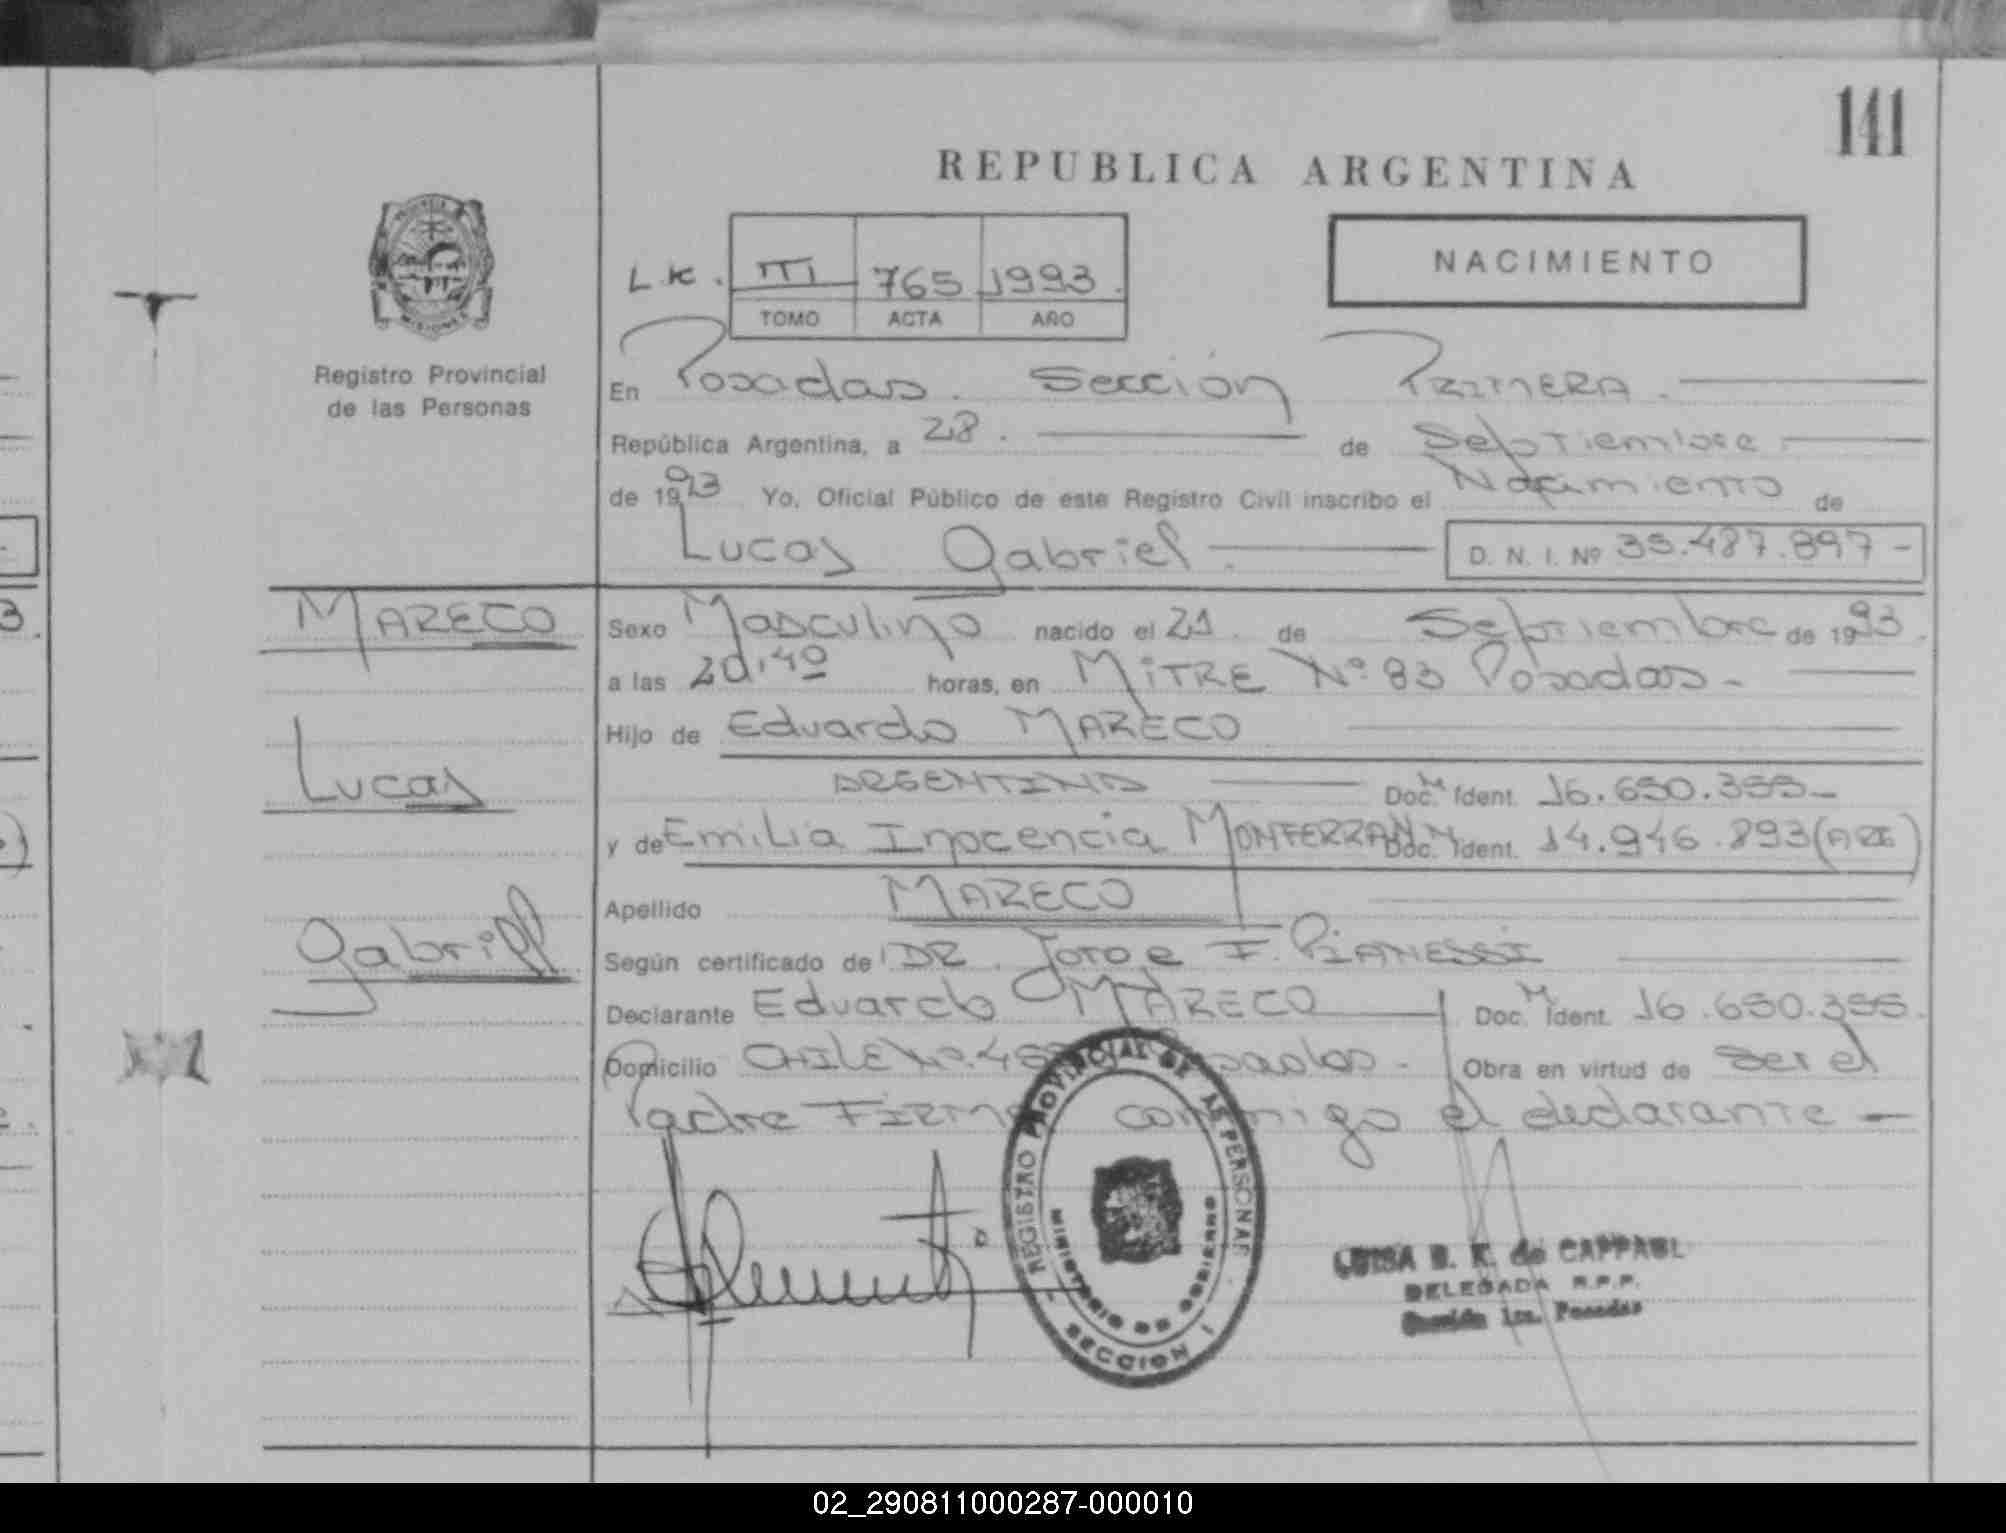 141
REPUBLICA ARGENTINA
NACIMIENTO
L.K. III 765 1993.
TOMO ACTA AÑO
PROVINCIA
MISIONES
Registro Provincial
de las Personas
En Posadas. Sección PRIMERA.
República Argentina, a 28. de Septiembre.
de 1993 Yo, Oficial Público de este Registro Civil inscribo el Nacimiento de
Lucas Gabriel. D. N. I. Nº 35.487.897-
MARECO
Lucas
Gabriel
Sexo Masculino nacido el 21. de Septiembre de 1993.
a las 20,40 horas, en MITRE Nº 83 Posadas-
Hijo de Eduardo MARECO
ARGENTINO Doc. M Ident. 16.650.355-
y de Emilia Inocencia MONFERRAN Doc. M Ident. 14.946.893 (ARG)
Apellido MARECO
Según certificado de DR. Jorge F. PIANESSI
Declarante Eduardo MARECO Doc. M Ident. 16.650.355.
Domicilio CHILE Nº Posadas- Obra en virtud de ser el
Padre FIRMA conmigo el declarante-
REGISTRO PROVINCIAL DE LAS PERSONAS
MINISTERIO DE GOBIERNO
SECCION 1
LUISA B. K. de CAPPAUL
DELEGADA R.P.P.
Sección 1ra. Posadas
02_290811000287-000010